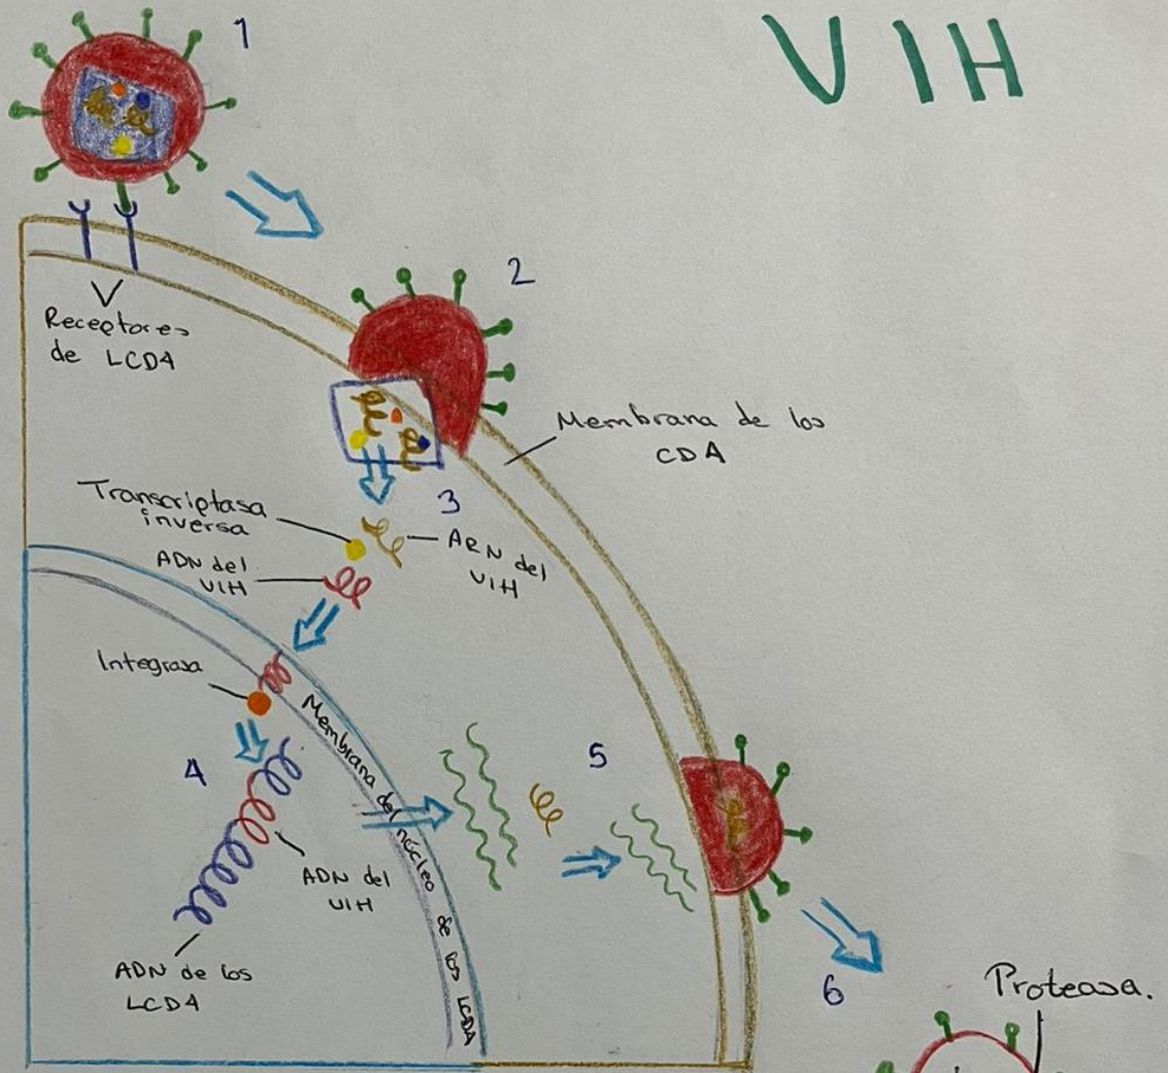 VIH
1
Receptores
de LCD4
2
Membrana de los
CD4
3
Transcriptasa
inversa
ARN del
VIH
ADN del
VIH
Integrasa
Membrana del núcleo de los LCD4
4
5
ADN del
VIH
ADN de los
LCD4
6
Proteasa.